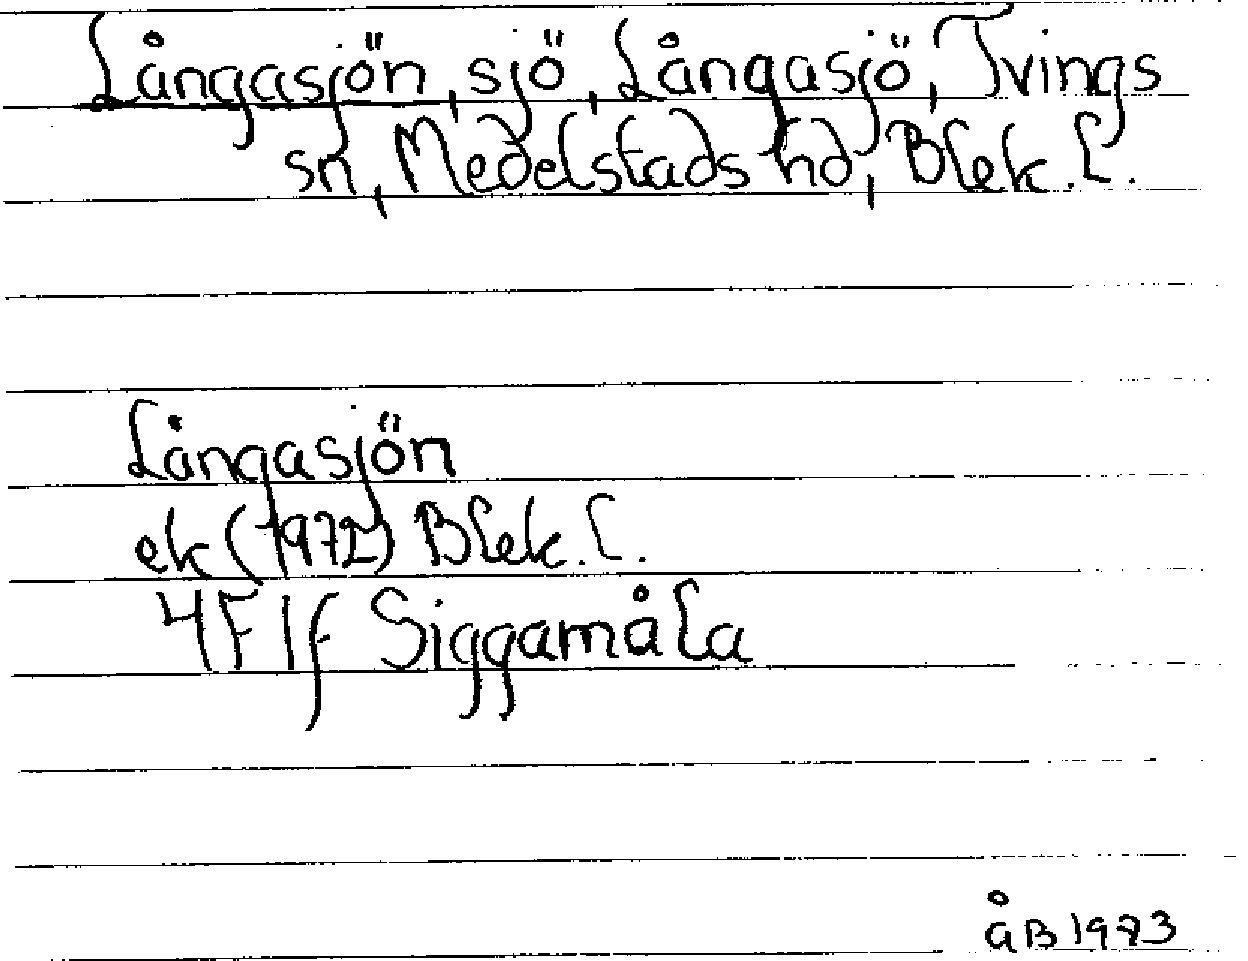 Långasjön, sjö, Långasjö, Tvings
sn, Medelstads hd, Blek. l.
Långasjön
ek (1972) Blek. l.
4F1f Siggamåla
åB 1973